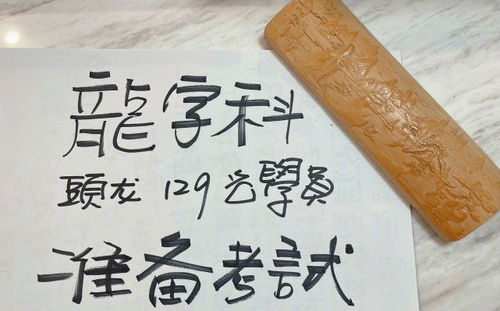 龍字科
頭龙 129 学員
准备考試